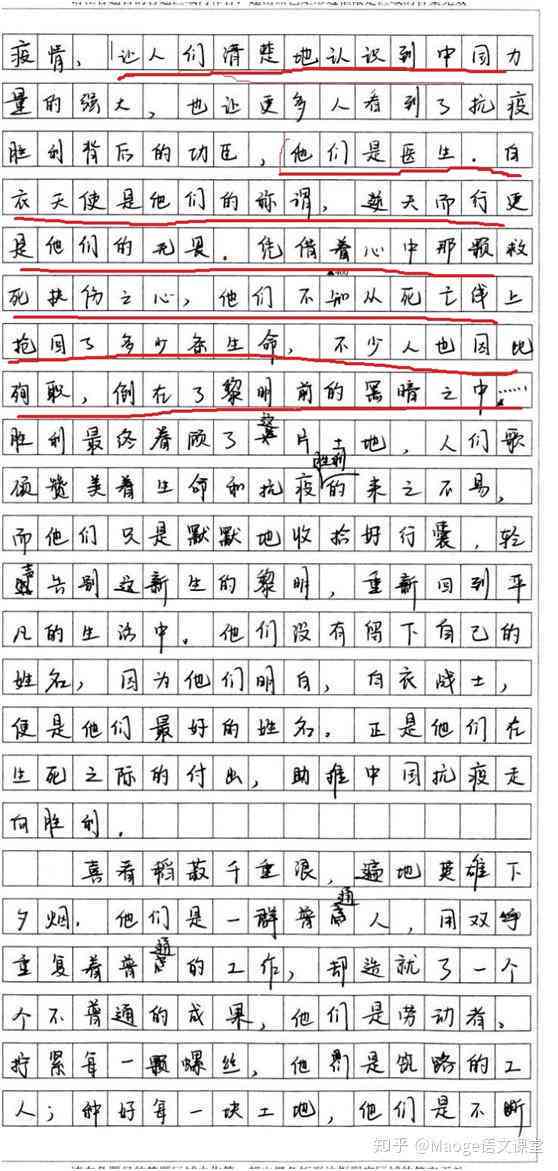 疫情，让人们清楚地认识到中国力
量的强大，也让更多人看到了抗疫
胜利背后的功臣，他们是医生。白
衣天使是他们的称谓，逆天而行更
是他们的无畏。凭借着心中那颗救
死扶伤之心，他们不知从死亡线上
抢回了多少条生命，不少人也因此
殉职，倒在了黎明前的黑暗之中……
胜利最终眷顾了这片土地，人们歌
颂赞美着生命和抗疫胜利的来之不易，
而他们只是默默地收拾好行囊，轻
声告别这新生的黎明，重新回到平
凡的生活中。他们没有留下自己的
姓名，因为他们明白，白衣战士，
便是他们最好的姓名。正是他们在
生死之际的付出，助推中国抗疫走
向胜利。
喜看稻菽千重浪，遍地英雄下
夕烟。他们是一群普通人，用双手
重复着普通的工作，却造就了一个
个不普通的成果，他们是劳动者。
拧紧每一颗螺丝，他们是筑路的工
人；种好每一块工地，他们是不断
知乎 @Maoge语文课堂